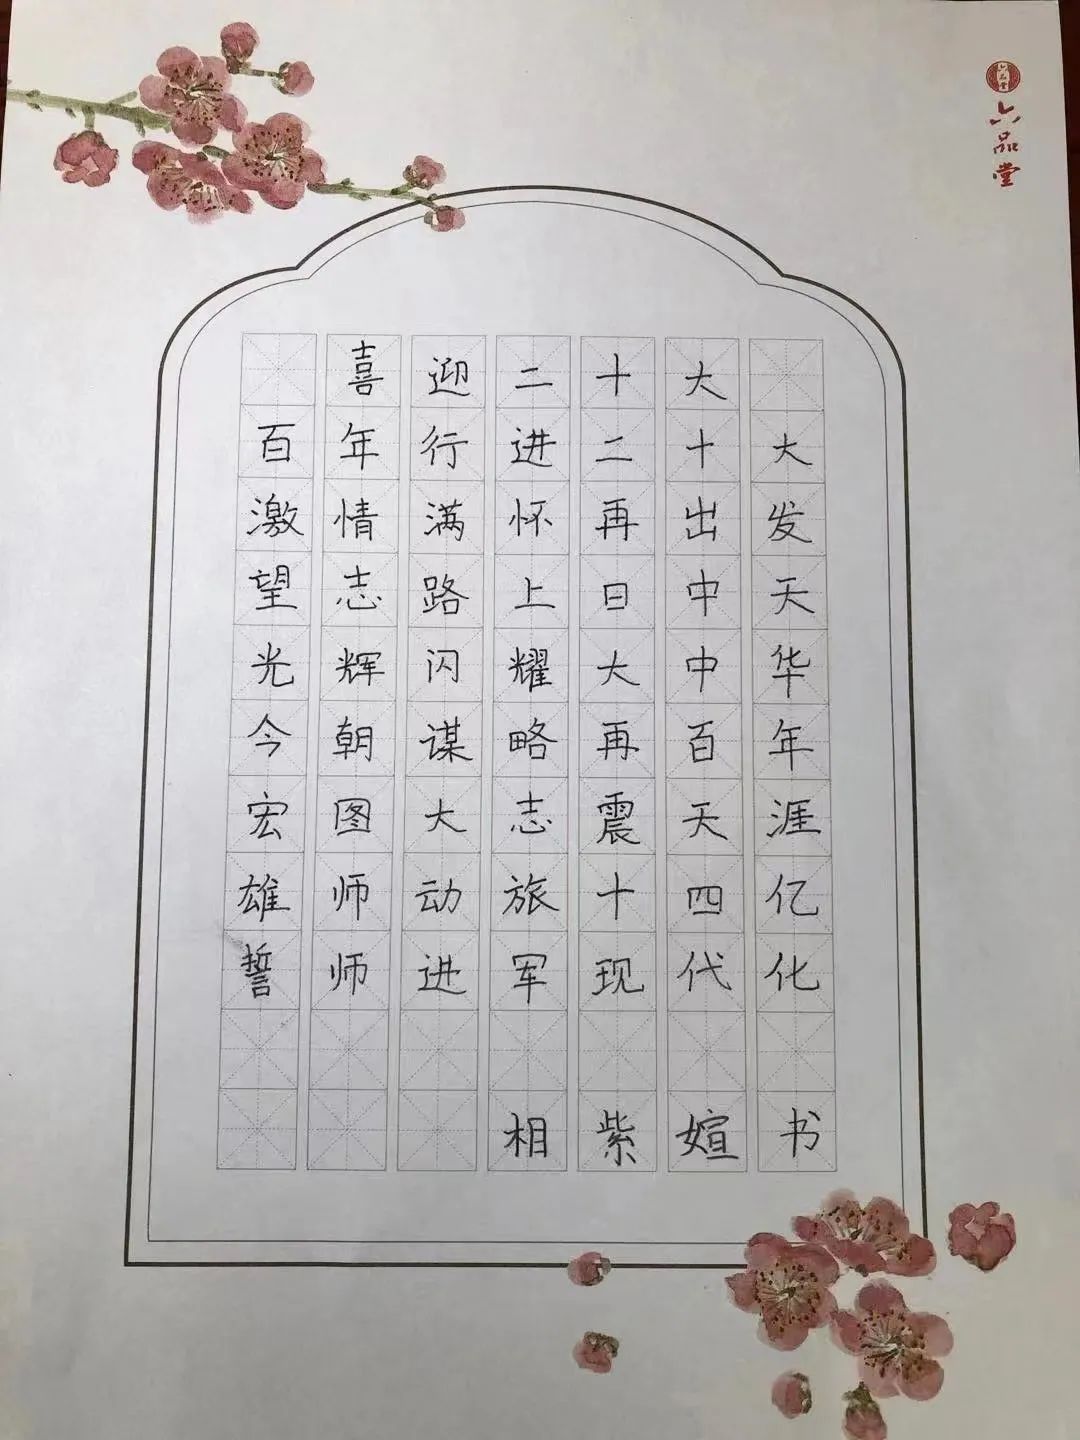 六品堂
六品堂
喜迎二十大
百年行进二十大
激情满怀再出发
望志路上日中天
光辉闪耀大中华
今朝谋略再百年
宏图大志震天涯
雄师动旅十四亿
誓师进军现代化
相紫媗书